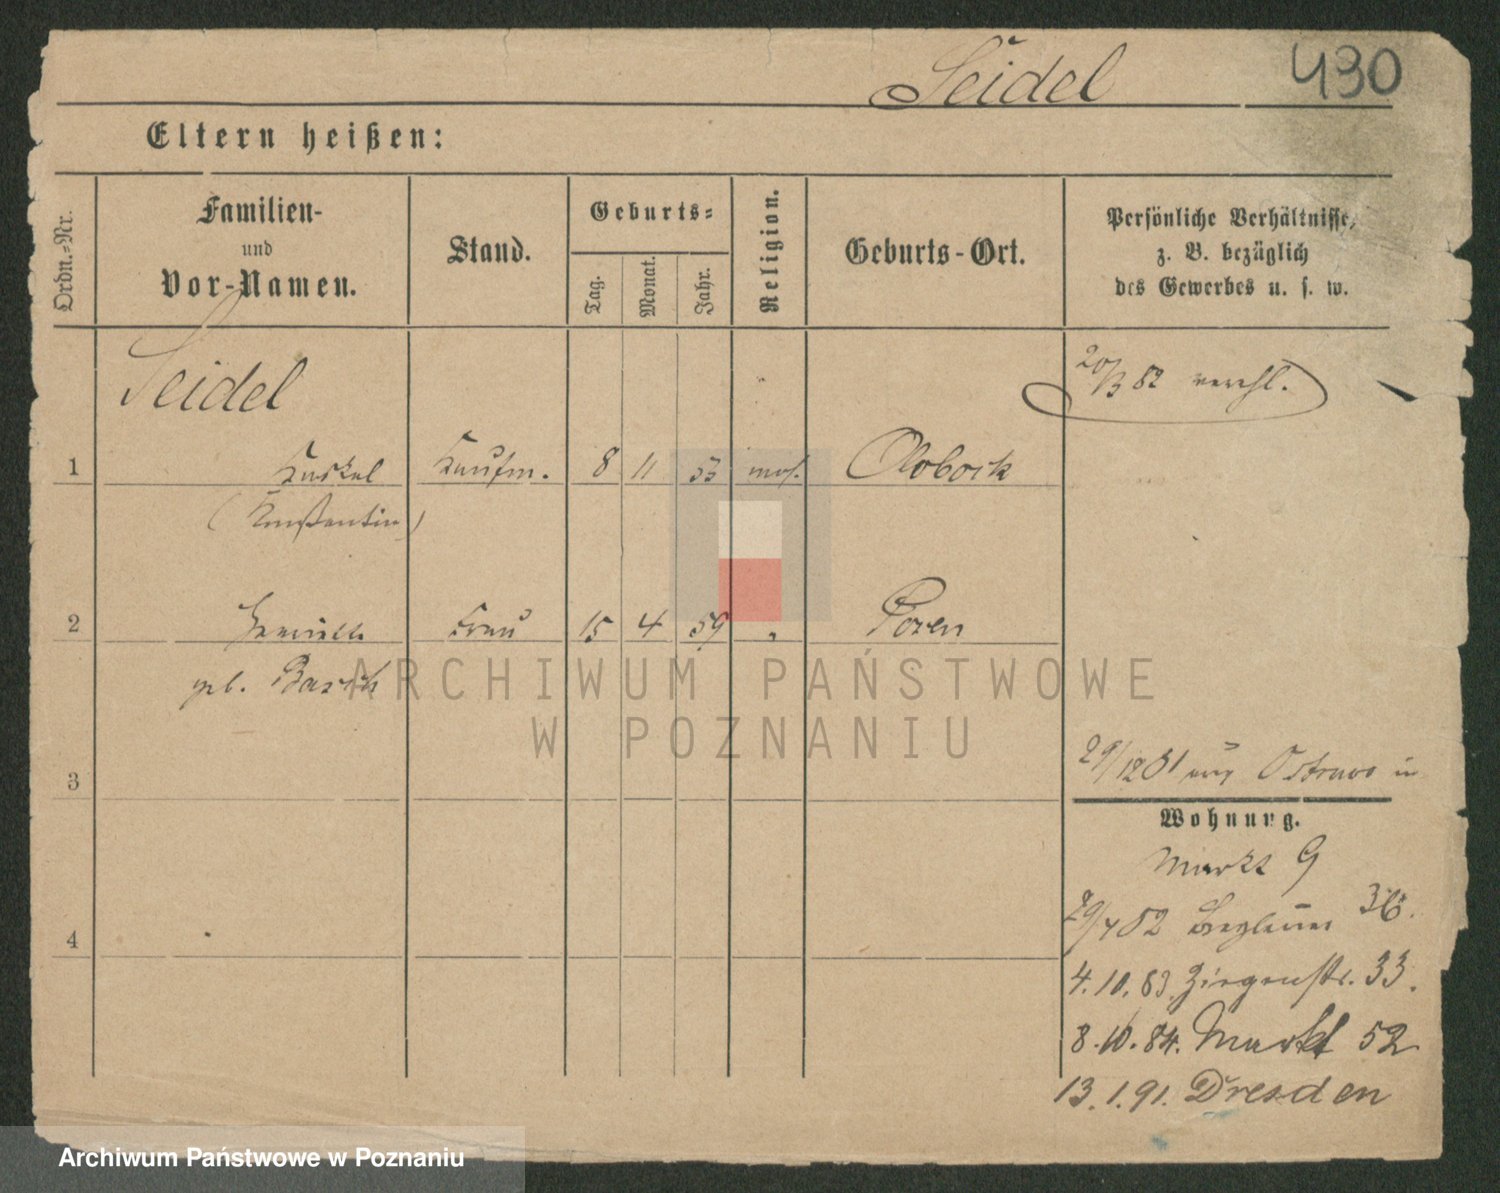 Seidel 430
Eltern heißen:
Ordn.-Nr.
Familien- und Vor-Namen.
Stand.
Geburts-
Tag.
Monat.
Jahr.
Religion.
Geburts-Ort.
Persönliche Verhältnisse, z. B. bezüglich des Gewerbes u. s. w.
Seidel
20/3 82 verehl.
1 Kaskel Kaufm. 8 11 53 mos. Olobock
(Konstantin)
2 Frau 15 4 59 " Posen
geb. Basch
ARCHIWUM PAŃSTWOWE
W POZNANIU
3
29/12 81 aus Ostrowo in
Wohnung.
Markt 9
4
29/4 82 36.
4.10.83. Ziegenstr. 33.
8.10.84. Markt 52
13.1.91. Dresden
Archiwum Państwowe w Poznaniu